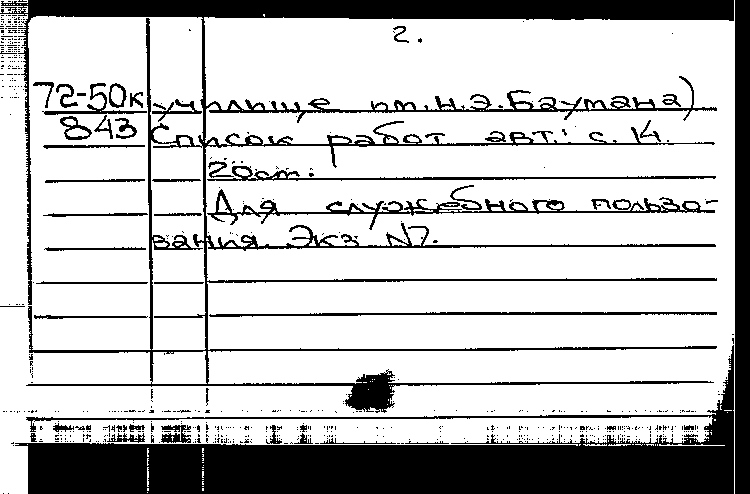 2.
72-50к училище им. Н.Э. Баумана)
843 Список работ авт.: с. 14.
20см.
Для служебного пользо-
вания. Экз N7.